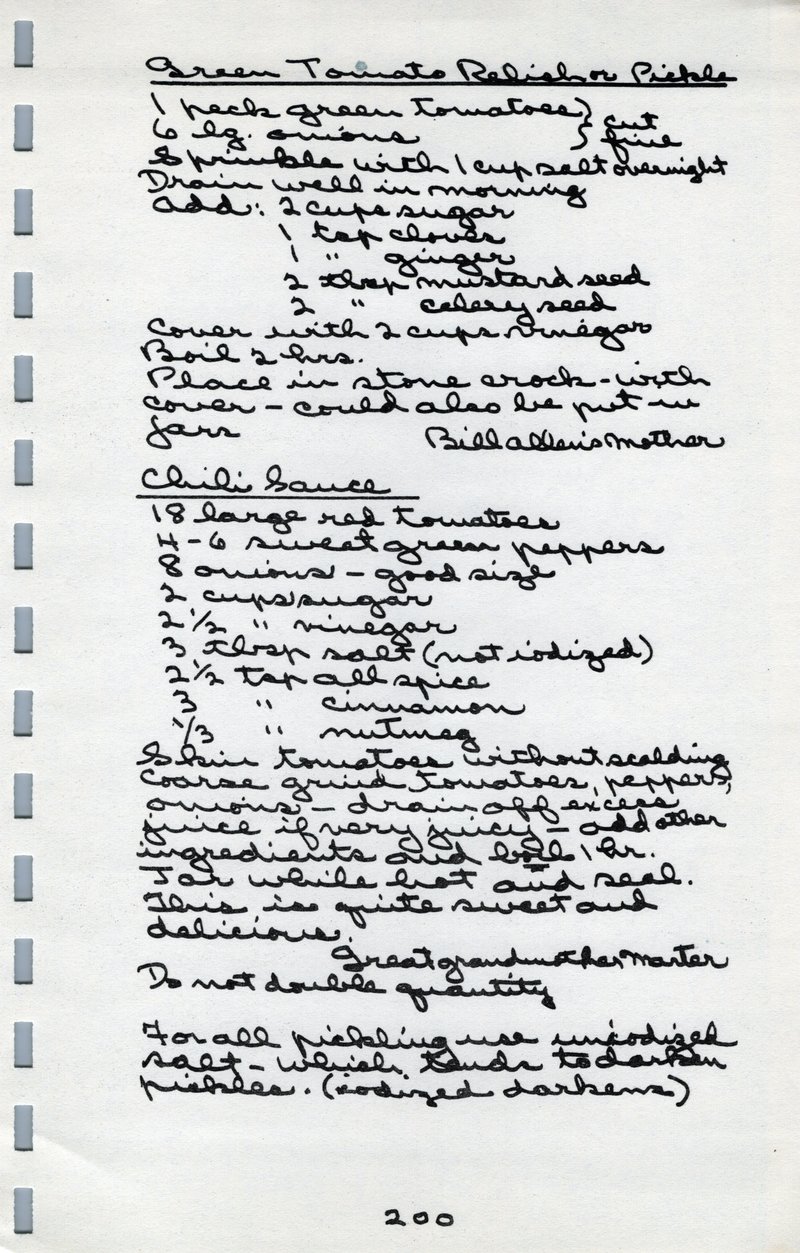 Green Tomato Relish or Pickle
1 peck green tomatoes } cut
6 lg. onions } fine
Sprinkle with 1 cup salt overnight
Drain well in morning
add: 2 cups sugar
1 tsp cloves
1 " ginger
2 tbsp mustard seed
2 " celery seed
Cover with 2 cups vinegar
Boil 2 hrs.
Place in stone crock - with
cover - could also be put in
jars
Bill Allen's Mother
Chili Sauce
18 large red tomatoes
4-6 sweet green peppers
8 onions - good size
2 cups sugar
2 1/2 " vinegar
3 tbsp salt (not iodized)
2 1/2 tsp all spice
3 " cinnamon
1/3 " nutmeg
Skin tomatoes without scalding
Coarse grind tomatoes, peppers,
onions - drain off excess
juice if very juicy - add other
ingredients and boil 1 hr.
Jar while hot and seal.
This is quite sweet and
delicious.
Great grandmother Marter
Do not double quantity
For all pickling use uniodized
salt - which tends to darken
pickles. (iodized darkens)
200